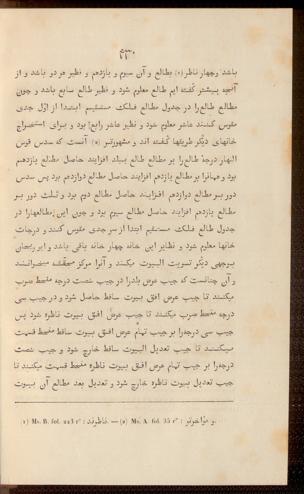 ۴۳۰
باشد وچهار ناظر (۱) بطالع و آن سیوم و یازدهم و نظیر هر دو باشد و از
آنچه پیشتر گفته ایم طالع معلوم شود و نظیر طالع سابع باشد و چون
مطالع طالع را در جدول مطالع فلک مستقیم ابتدا از اول جدی
مقوس کنند عاشر معلوم شود و نظیر عاشر رابع بود و برای استخراج
خانهای دیگر طریقها گفته اند و مشهورتر (۲) آنست که سدس قوس
النهار درجهٔ طالع را بر مطالع طالع افزایند حاصل مطالع یازدهم
بود و بر مطالع یازدهم افزایند حاصل مطالع دوازدهم بود پس سدس
دور بر مطالع دوازدهم افزایند حاصل مطالع دوم بود و ثلث دور بر
مطالع یازدهم افزایند حاصل مطالع سیوم بود و چون این مطالعها را در
جدول طالع فلک مستقیم ابتدا از سر جدی مقوس کنند و درجات
خانها معلوم شود و نظایر این خانه چهار خانه باقی باشد و ابو ریحان
بوجهی دیگر تسویت البیوت میکند و آنرا مرکز محققه میخوانند
و آن چنانست که جیب عرض بلد را در جیب شصت درجه منحط ضرب
میکنند تا جیب عرض افق بیوت ساقط حاصل شود و در جیب سی
درجه منحط ضرب میکنند تا جیب عرض افق بیوت ناظره شود پس
جیب سی درجه را بر جیب تمام عرض افق بیوت ساقط منحط قسمت
میکنند تا جیب تعدیل البیوت ساقط خارج شود و جیب شصت
درجه را بر جیب تمام عرض افق بیوت ناظره منحط قسمت میکنند تا
جیب تعدیل بیوت ناظره خارج شود و تعدیل بعد مطالع آن بیوت
(۱) Ms. B. fol. 223 r° : ناظرند. — (۲) Ms. A. fol. 35 r° :